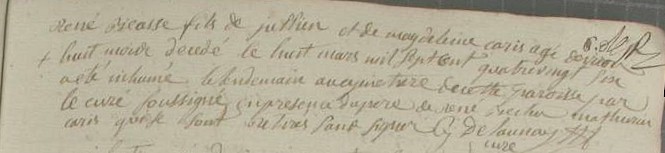 René Picasse fils de jullien et de magdeleine caris agé denviron
+ huit mois de decedé le huit mars mil sept cent quatre vingt six
a eté inhumé le lendemain au cymetiere de cette paroisse par
le curé soussigné en presence du pere de rené mathurin
caris qui se sont retirés sans signer De Launay
curé